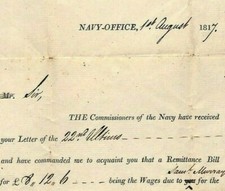 NAVY-OFFICE, 1st August 1817.
Sir,
THE Commissioners of the Navy have received
your Letter of the 22nd Ultimo
and have commanded me to acquaint you that a Remittance Bill
Saml Murray
for £8.12.6 being the Wages due to you for the